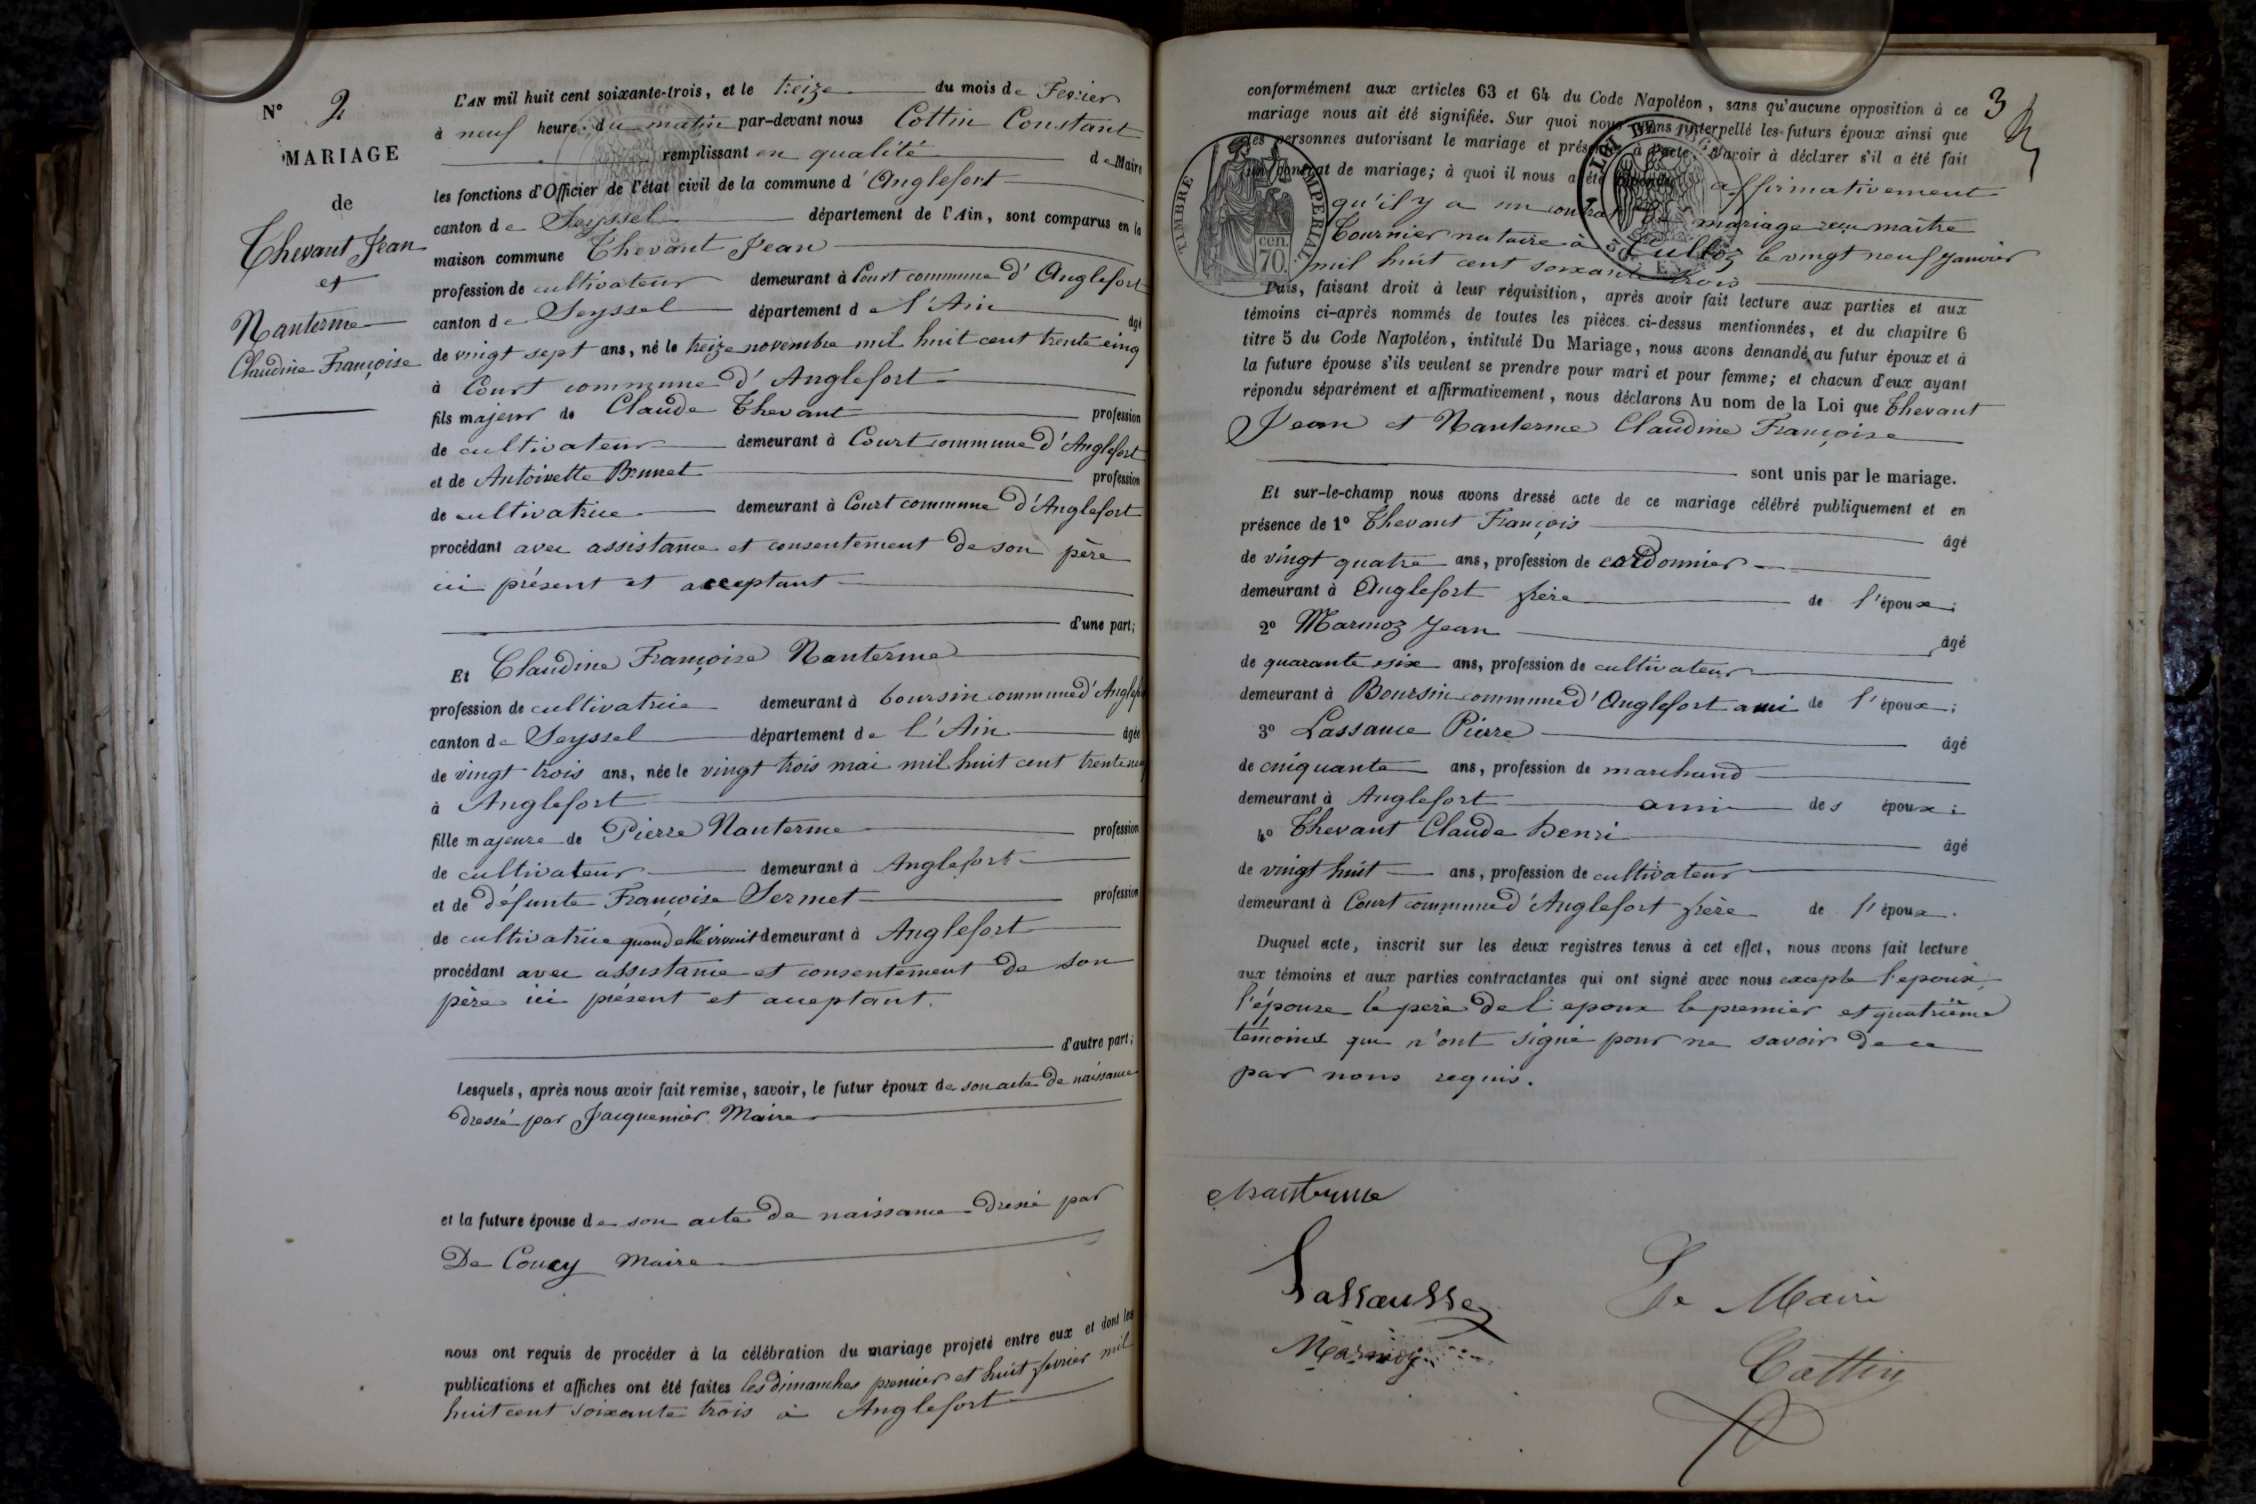 N° 2
MARIAGE
de
Thevant Jean
et
Nanterme
Claudine Françoise
L'AN mil huit cent soixante-trois, et le treize du mois de Fevrier
à neuf heure du matin par-devant nous Cottin Constant
remplissant en qualité de Maire
les fonctions d'Officier de l'état civil de la commune d'Anglefort
canton de Seyssel département de l'Ain, sont comparus en la
maison commune Thevant Jean
profession de cultivateur demeurant à Court commune d'Anglefort
canton de Seyssel département de l'Ain âgé
de vingt sept ans, né le treize novembre mil huit cent trente cinq
à Court commune d'Anglefort
fils majeur de Claude Thevant profession
de cultivateur demeurant à Court commune d'Anglefort
et de Antoinette Brunet profession
de cultivatrice demeurant à Court commune d'Anglefort
procédant avec assistance et consentement de son père
ici présent et acceptant
d'une part;
Et Claudine Françoise Nanterme
profession de cultivatrice demeurant à boursin commune d'Anglefort
canton de Seyssel département de l'Ain âgée
de vingt trois ans, née le vingt trois mai mil huit cent trente neuf
à Anglefort
fille majeure de Pierre Nanterme profession
de cultivateur demeurant à Anglefort
et de défunte Françoise Sermet profession
de cultivatrice quand elle vivait demeurant à Anglefort
procédant avec assistance et consentement de son
père ici présent et acceptant.
d'autre part;
Lesquels, après nous avoir fait remise, savoir, le futur époux de son acte de naissance
dressé par Jacquemier Maire
et la future épouse de son acte de naissance dressé par
De Coucy maire
nous ont requis de procéder à la célébration du mariage projeté entre eux et dont les
publications et affiches ont été faites les dimanches premier et huit fevrier mil
huit cent soixante trois à Anglefort
3
conformément aux articles 63 et 64 du Code Napoléon, sans qu'aucune opposition à ce
mariage nous ait été signifiée. Sur quoi nous avons interpellé les futurs époux ainsi que
les personnes autorisant le mariage et présentes à l'acte, d'avoir à déclarer s'il a été fait
un contrat de mariage; à quoi il nous a été répondu affirmativement
qu'il y a un contrat de mariage reçu maître
Tournier notaire à Culloz le vingt neuf janvier
mil huit cent soixante trois
TIMBRE IMPERIAL
cen.
70.
Puis, faisant droit à leur réquisition, après avoir fait lecture aux parties et aux
témoins ci-après nommés de toutes les pièces ci-dessus mentionnées, et du chapitre 6
titre 5 du Code Napoléon, intitulé Du Mariage, nous avons demandé au futur époux et à
la future épouse s'ils veulent se prendre pour mari et pour femme; et chacun d'eux ayant
répondu séparément et affirmativement, nous déclarons Au nom de la Loi que Thevant
Jean et Nanterme Claudine Françoise
sont unis par le mariage.
Et sur-le-champ nous avons dressé acte de ce mariage célébré publiquement et en
présence de 1° Thevant François âgé
de vingt quatre ans, profession de cordonnier
demeurant à Anglefort frère de l'époux;
2° Marmoz Jean âgé
de quarante six ans, profession de cultivateur
demeurant à Boursin commune d'Anglefort ami de l'époux;
3° Lassauce Pierre âgé
de cinquante ans, profession de marchand
demeurant à Anglefort ami des époux;
4° Thevant Claude henri âgé
de vingt huit ans, profession de cultivateur
demeurant à Court commune d'Anglefort frère de l'époux.
Duquel acte, inscrit sur les deux registres tenus à cet effet, nous avons fait lecture
aux témoins et aux parties contractantes qui ont signé avec nous excepte l'epoux
l'épouse le père de l'epoux le premier et quatrième
témoins qui n'ont signé pour ne savoir de ce
par nous requis.
Nanterme
Lassausse
Marmoz
Le Maire
Cottin